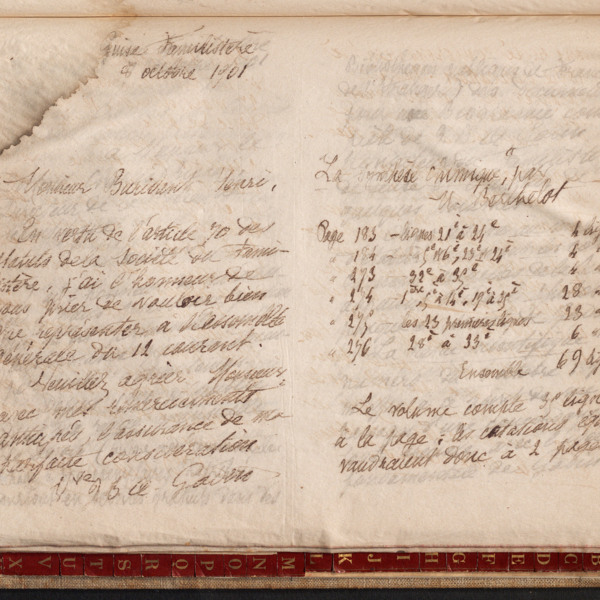 Guise Familistère
8 octobre 1901
Monsieur Buridant Henri,
En vertu de l'article 70 des
Statuts de la Société du Fami-
-stère, j'ai l'honneur de
vous prier de vouloir bien
me représenter à l'assemblée
générale du 12 courant.
Veuillez agréer Monsieur,
avec mes remerciements
anticipés, l'assurance de ma
parfaite considération
Vve G
La Synthèse chimique, par
M. Berthelot
Page 193 – lignes 21e à 24e 4 lig
" 194 – 23e à 24e 4
" 273 – 4
" 274 28
" 275 – les 23 premières lignes – 23
" 276 28e à 33e 6
Ensemble 69 lig
Le volume compte 30 lign
à la page ; les citations équi
vaudraient donc à 2 pages
X V U T S R Q P O N M L K J I H G F E D C B